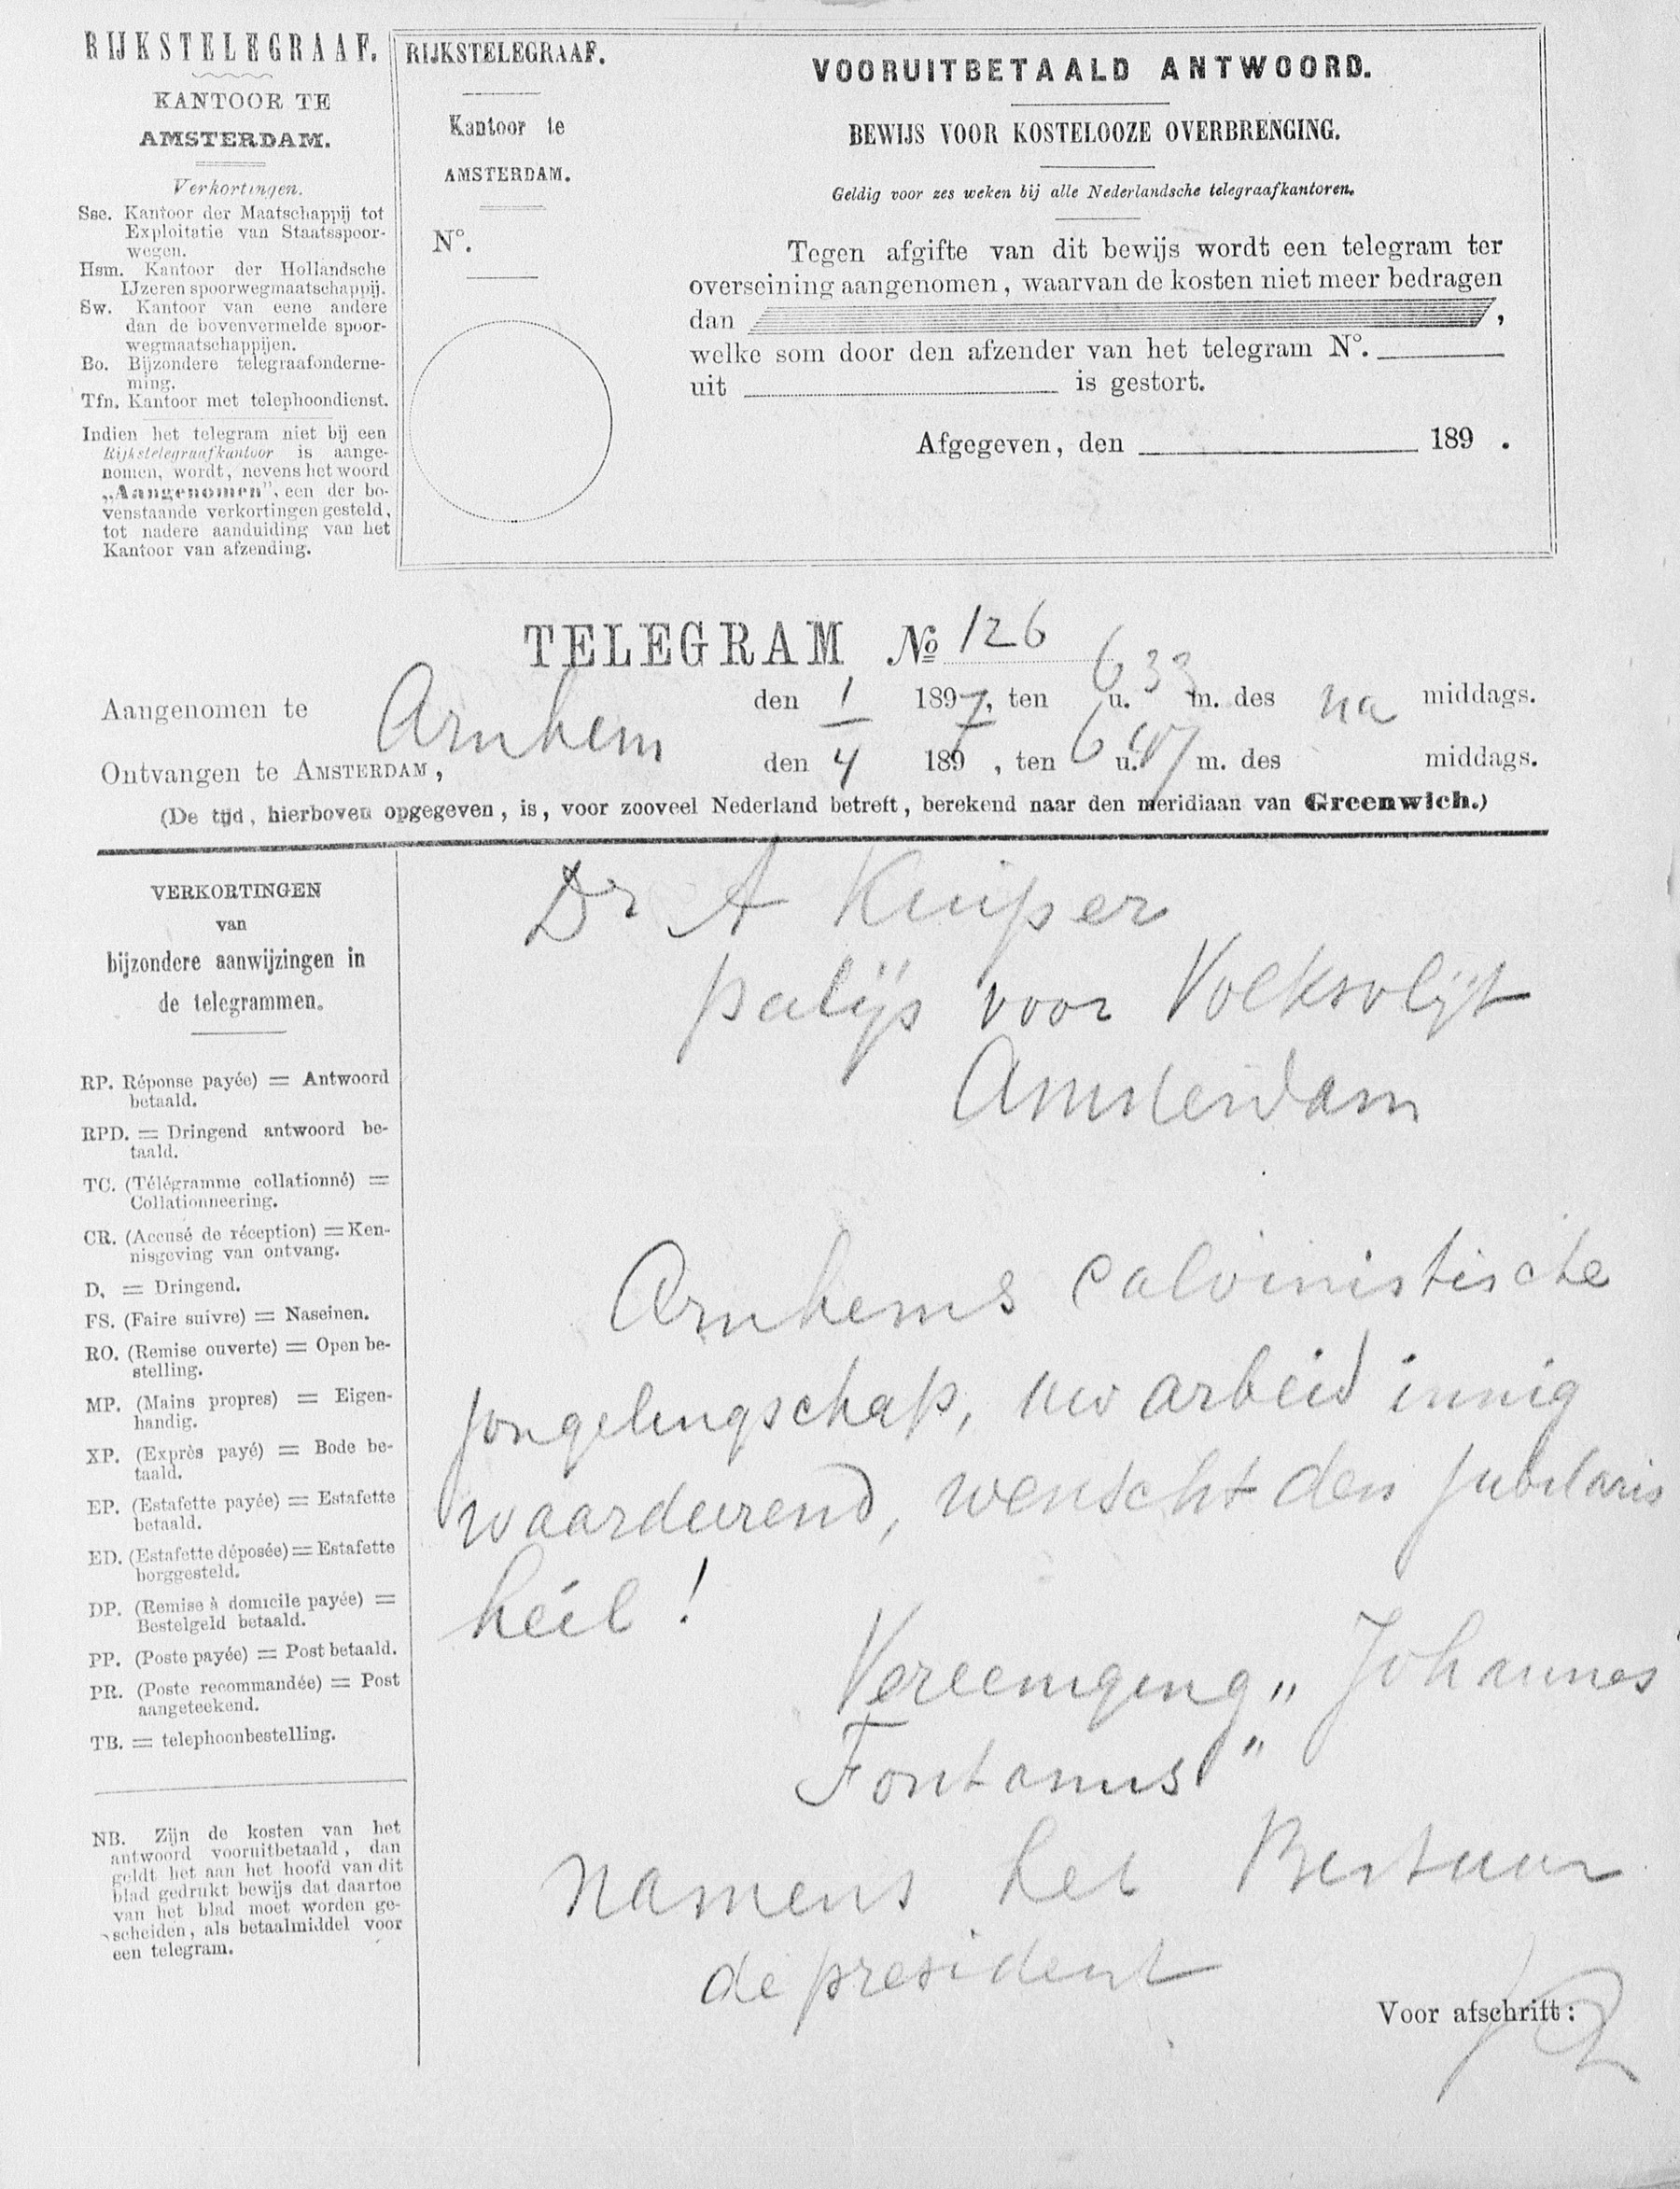 RIJKSTELEGRAAF.
KANTOOR TE
AMSTERDAM.
Verkortingen.
Ssc. Kantoor der Maatschappij tot
Exploitatie van Staatsspoor-
wegen.
Hsm. Kantoor der Hollandsche
IJzeren spoorwegmaatschappij.
Sw. Kantoor van eene andere
dan de bovenvermelde spoor-
wegmaatschappijen.
Bo. Bijzondere telegraafonderne-
ming.
Tfn. Kantoor met telephoondienst.
Indien het telegram niet bij een
Rijkstelegraafkantoor is aange-
nomen, wordt, nevens het woord
„Aangenomen”, een der bo-
venstaande verkortingen gesteld,
tot nadere aanduiding van het
Kantoor van afzending.
RIJKSTELEGRAAF.
Kantoor te
AMSTERDAM.
N°.
VOORUITBETAALD ANTWOORD.
BEWIJS VOOR KOSTELOOZE OVERBRENGING.
Geldig voor zes weken bij alle Nederlandsche telegraafkantoren.
Tegen afgifte van dit bewijs wordt een telegram ter
overseining aangenomen, waarvan de kosten niet meer bedragen
dan ,
welke som door den afzender van het telegram N°.
uit is gestort.
Afgegeven, den 189 .
TELEGRAM № 126
Aangenomen te Arnhem den 1 1897, ten 6 u. 33 m. des na middags.
Ontvangen te AMSTERDAM, den 4 189 , ten 6 u. 47 m. des middags.
(De tijd, hierboven opgegeven, is, voor zooveel Nederland betreft, berekend naar den meridiaan van Greenwich.)
VERKORTINGEN
van
bijzondere aanwijzingen in
de telegrammen.
RP. Réponse payée) = Antwoord
betaald.
RPD. = Dringend antwoord be-
taald.
TC. (Télégramme collationné) =
Collationneering.
CR. (Accusé de réception) = Ken-
nisgeving van ontvang.
D. = Dringend.
FS. (Faire suivre) = Naseinen.
RO. (Remise ouverte) = Open be-
stelling.
MP. (Mains propres) = Eigen-
handig.
XP. (Exprès payé) = Bode be-
taald.
EP. (Estafette payée) = Estafette
betaald.
ED. (Estafette déposée) = Estafette
borggesteld.
DP. (Remise à domicile payée) =
Bestelgeld betaald.
PP. (Poste payée) = Post betaald.
PR. (Poste recommandée) = Post
aangeteekend.
TB. = telephoonbestelling.
NB. Zijn de kosten van het
antwoord vooruitbetaald, dan
geldt het aan het hoofd van dit
blad gedrukt bewijs dat daartoe
van het blad moet worden ge-
scheiden, als betaalmiddel voor
een telegram.
Dr A Kuijper
palijs voor Volksvlijt
Amsterdam
Arnhems calvinistische
jongelingschap, uw arbeid innig
waardeerend, wenscht den jubilaris
heil!
Vereeniging „Johannes
Fontanus”
Namens het Bestuur
de president
Voor afschrift: